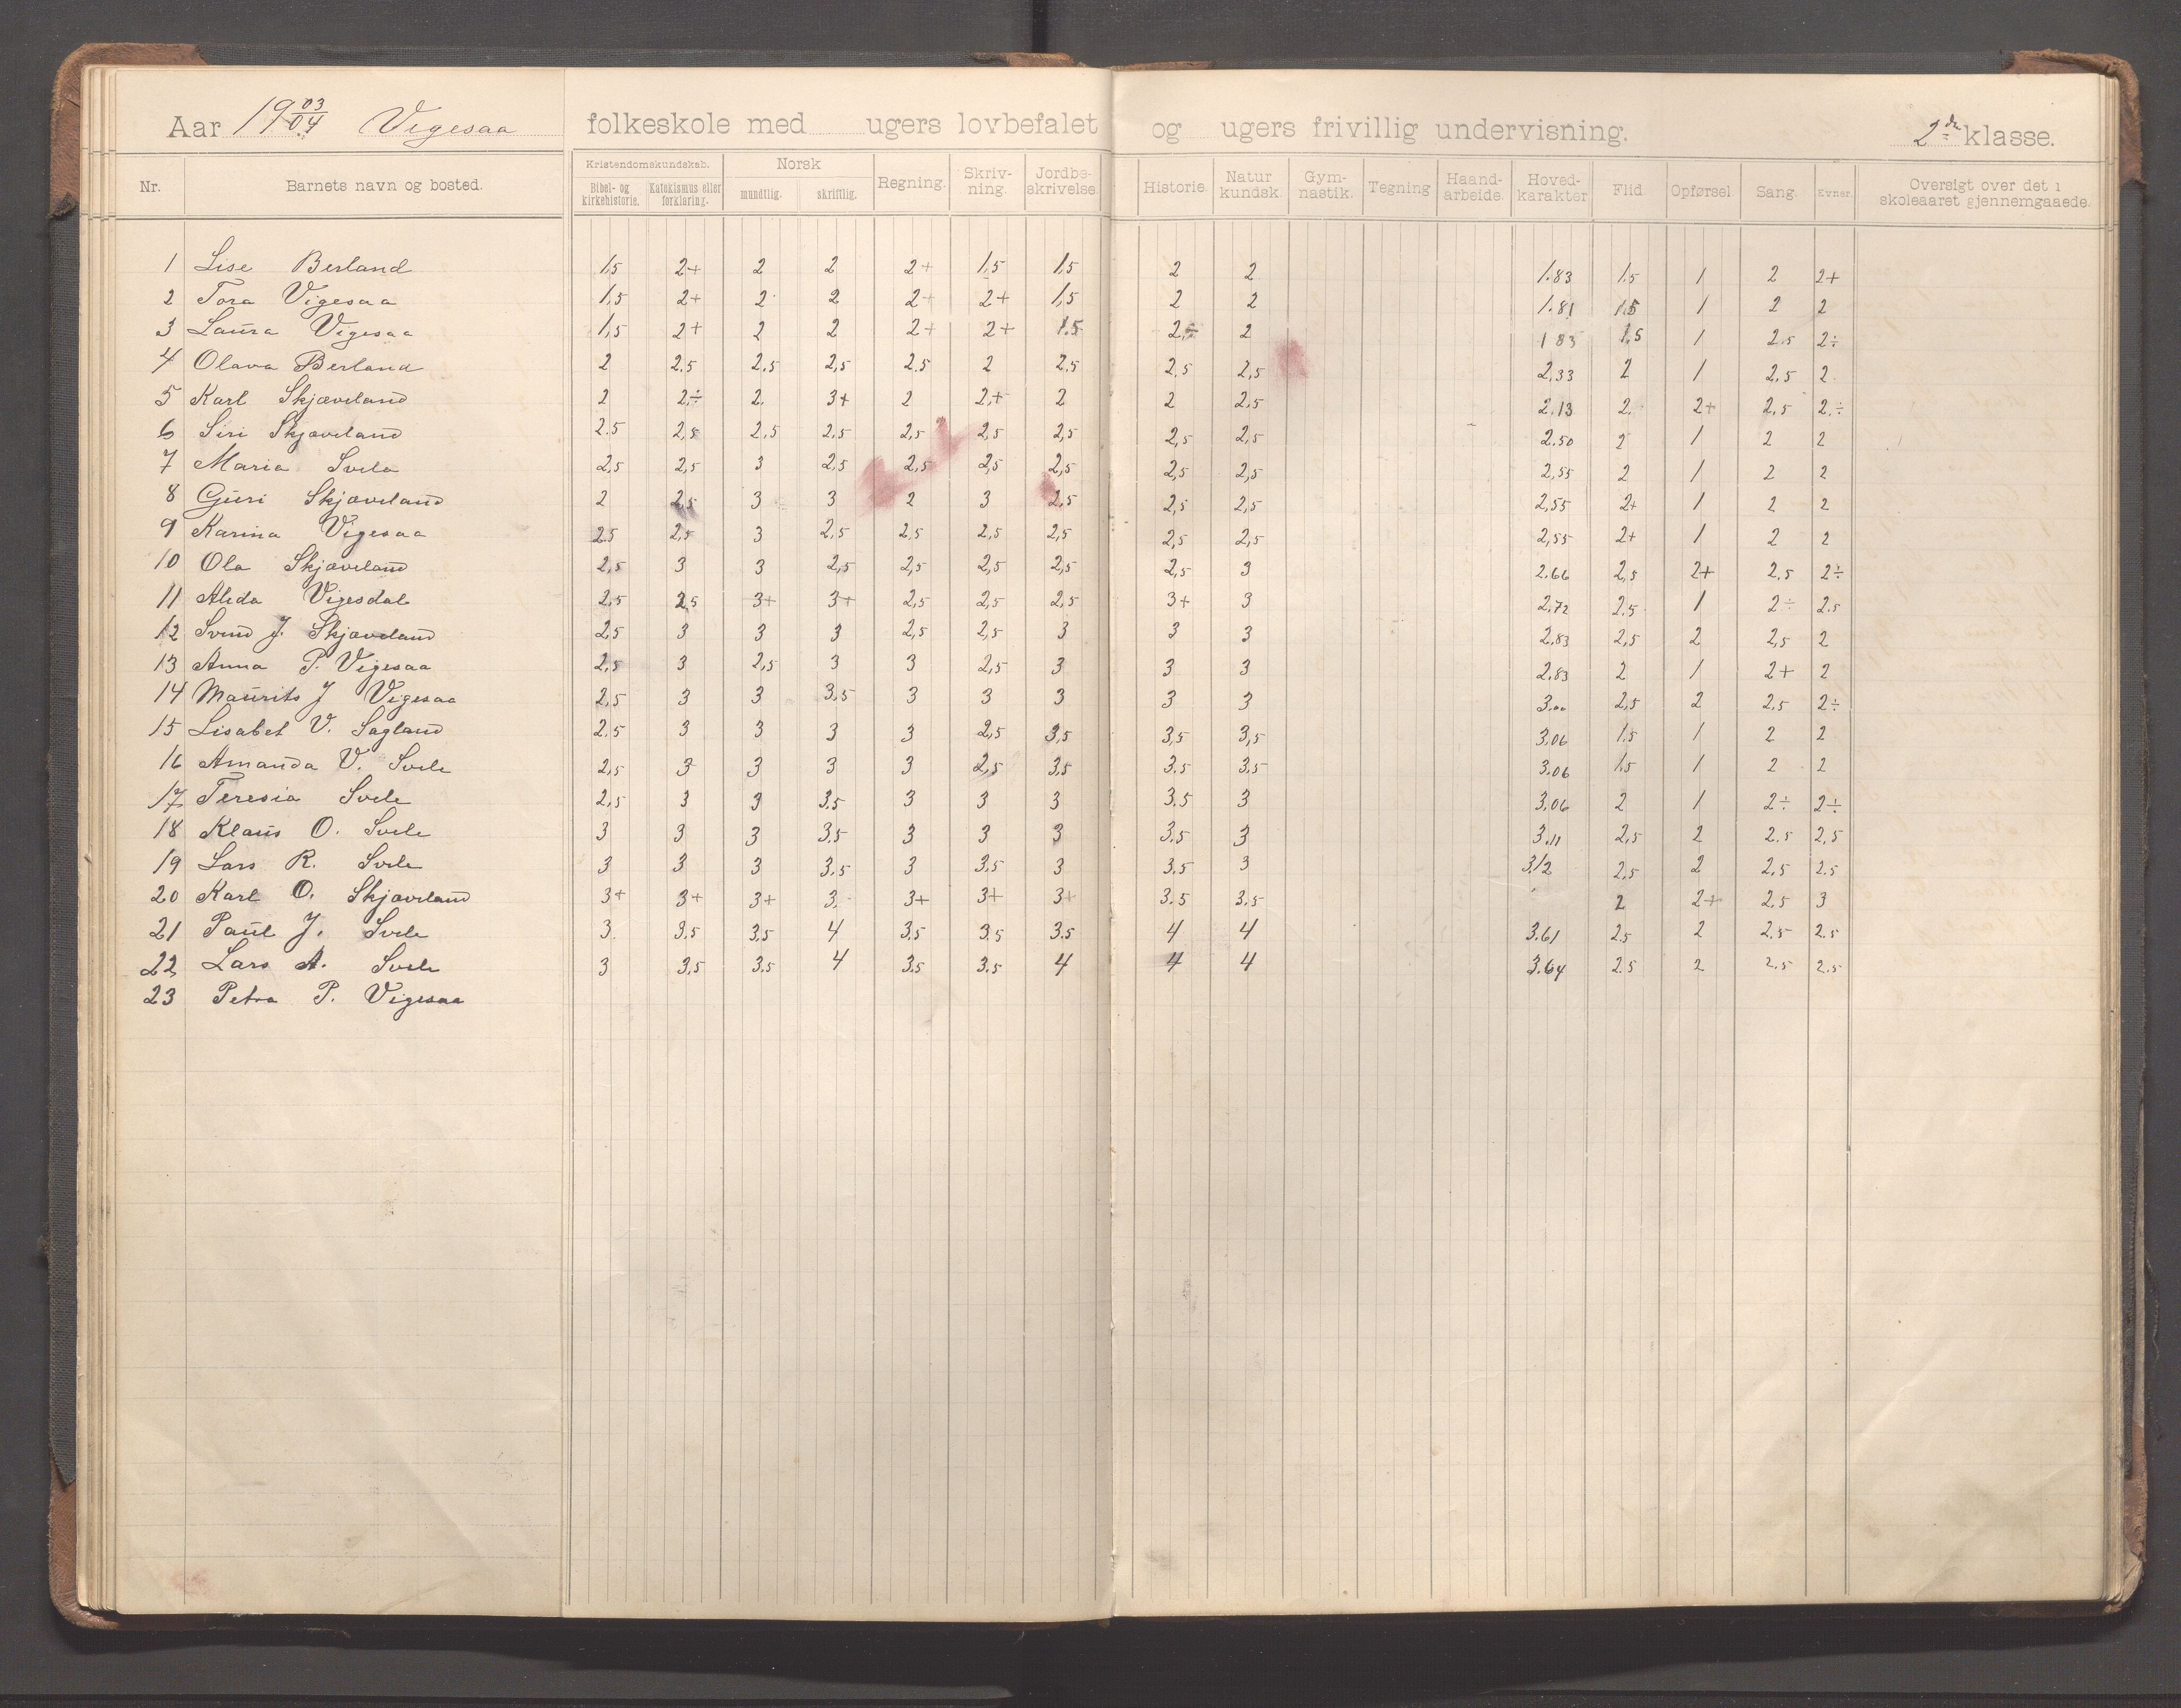 Aar 19 03/04 Vigesaa folkeskole med ugers lovbefalet og ugers frivillig undervisning. 2den klasse.
Nr. Barnets navn og bosted. Kristendomskundskab. Bibel- og kirkehistorie. Katekismus eller forklaring. Norsk mundtlig. skriftlig. Regning. Skriv-ning. Jordbe-skrivelse. Historie. Natur kundsk. Gym-nastik. Tegning Haand-arbeide. Hoved-karakter Flid Opførsel Sang. Evner Oversigt over det i skoleaaret gjennemgaaede.
1 Lise Berland 1,5 2+ 2 2 2+ 1,5 1,5 2 2 1.83 1.5 1 2 2+
2 Tora Vigesaa 1,5 2+ 2 2 2+ 2+ 1,5 2 2 1.81 1.5 1 2 2
3 Laura Vigesaa 1,5 2+ 2 2 2+ 2+ 1.5 2÷ 2 1 85 1,5 1 2.5 2÷
4 Olava Berland 2 2.5 2,5 2,5 2.5 2 2.5 2,5 2,5 2,33 2 1 2,5 2
5 Karl Skjæveland 2 2÷ 2. 3+ 2 2,+ 2 2 2,5 2.13 2. 2+ 2,5 2,÷
6 Siri Skjæveland 2.5 2,5 2,5 2,5 2,5 2,5 2,5 2,5 2,5 2.50 2 1 2 2
7 Maria Svela 2,5 2,5 3 2,5 2,5 2,5 2,5 2,5 2,5 2,55 2 1 2 2
8 Guri Skjæveland 2 2,5 3 3 2 3 2,5 2,5 2,5 2,55 2+ 1 2 2
9 Karina Vigesaa 2.5 2,5 3 2,5 2,5 2,5 2,5 2,5 2,5 2,55 2+ 1 2 2
10 Ola Skjæveland 2,5 3 3 2,5 2,5 2,5 2,5 2,5 3 2.66 2,5 2+ 2,5 2÷
11 Alida Vigesdal 2,5 2,5 3+ 3+ 2,5 2,5 2,5 3+ 3 2,72 2.5 1 2÷ 2.5
12 Svend J. Skjæveland 2,5 3 3 3 2,5 2,5 3 3 3 2.83 2,5 2 2,5 2
13 Anna P. Vigesaa 2,5 3 2,5 3 3 2,5 3 3 3 2.83 2 1 2+ 2
14 Maurits J Vigesaa 2,5 3 3 3.5 3 3 3 3 3 3.00 2,5 2 2,5 2÷
15 Lisabet V. Sagland 2.5 3 3 3 3 2,5 3,5 3,5 3,5 3.06 1.5 1 2 2
16 Amanda V. Svele 2,5 3 3 3 3 2,5 3,5 3.5 3.5 3.06 1.5 1 2 2
17 Teresia Svele 2,5 3 3 3.5 3 3 3 3.5 3 3,06 2 1 2÷ 2÷
18 Klaus O. Svele 3 3 3 3.5 3 3 3 3.5 3 3.11 2,5 2 2.5 2,5
19 Lars R. Svele 3 3 3 3.5 3 3.5 3 3.5 3 3.12 2,5 2 2,5 2.5
20 Karl O. Skjæveland 3+ 3+ 3+ 3 3+ 3+ 3+ 3.5 3.5 2 2+ 2.5 3
21 Paul J. Svele 3. 3,5 3.5 4 3.5 3.5 3.5 4 4 3.61 2.5 2 2.5 2.5
22 Lars A. Svele 3 3,5 3.5 4 3.5 3.5 4 4 4 3.64 2.5 2 2.5 2.5
23 Petra P. Vigesaa